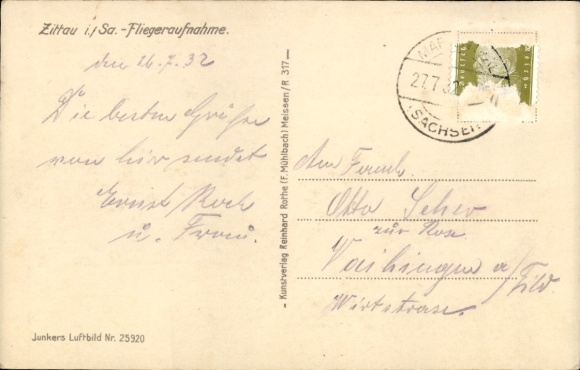 Zittau i./Sa.-Fliegeraufnahme.
den 26.7.32
Die besten Grüße
von hier sendet
Ernst Koch
u. Frau.
- Kunstverlag Reinhard Rothe (F. Mühlbach) Meissen/R 317 -
27.7.32
(SACHSEN)
An Famil.
Otto
zur Rose
Vaihingen a/Fild.
Wirtstrasse.
Junkers Luftbild Nr. 25920